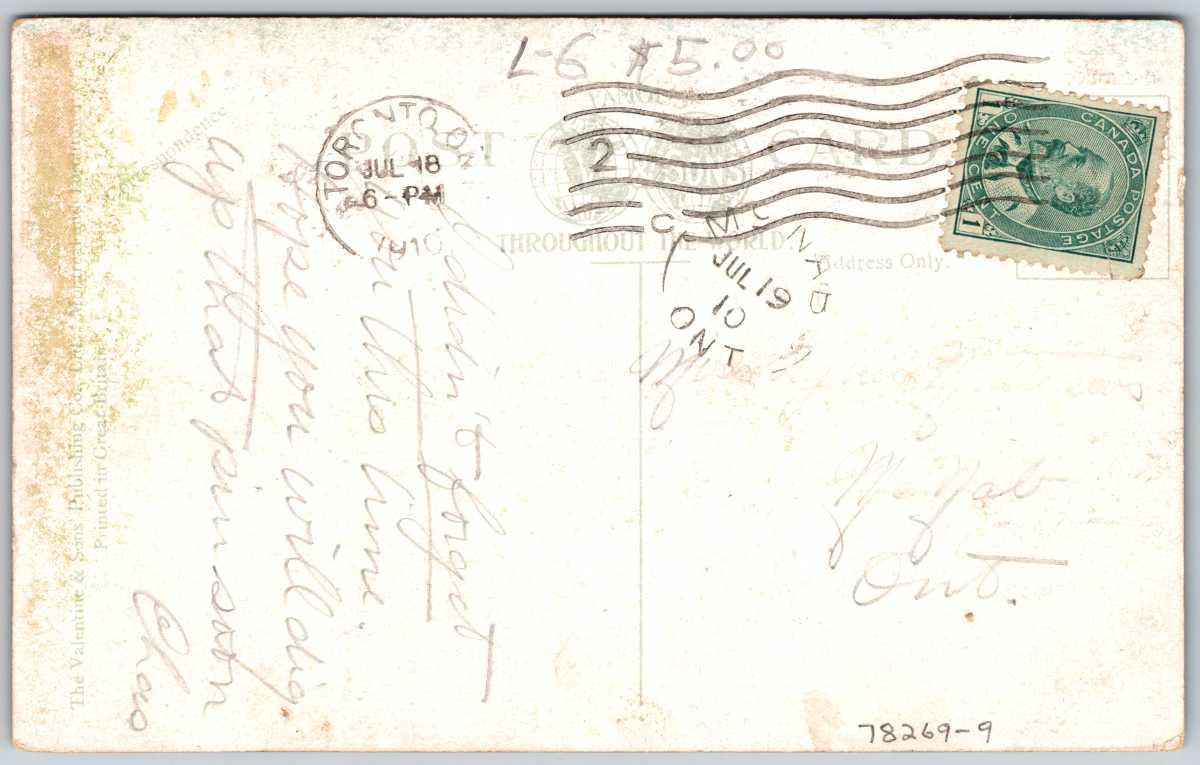 L-6 $5.00
TORONTO, ON
JUL 18
6-PM
1910
2
FAMOUS
POST CARD
THROUGHOUT THE WORLD.
Address Only.
CANADA POSTAGE
ONE CENT
1 1
MCNAB
JUL 19
10
ONT
Didn't forget
you this time.
Hope you will dig
up that pin soon
Chas
Miss
McNab
Ont.
The Valentine & Sons Publishing Co., Ltd.
Printed in Great Britain
78269-9